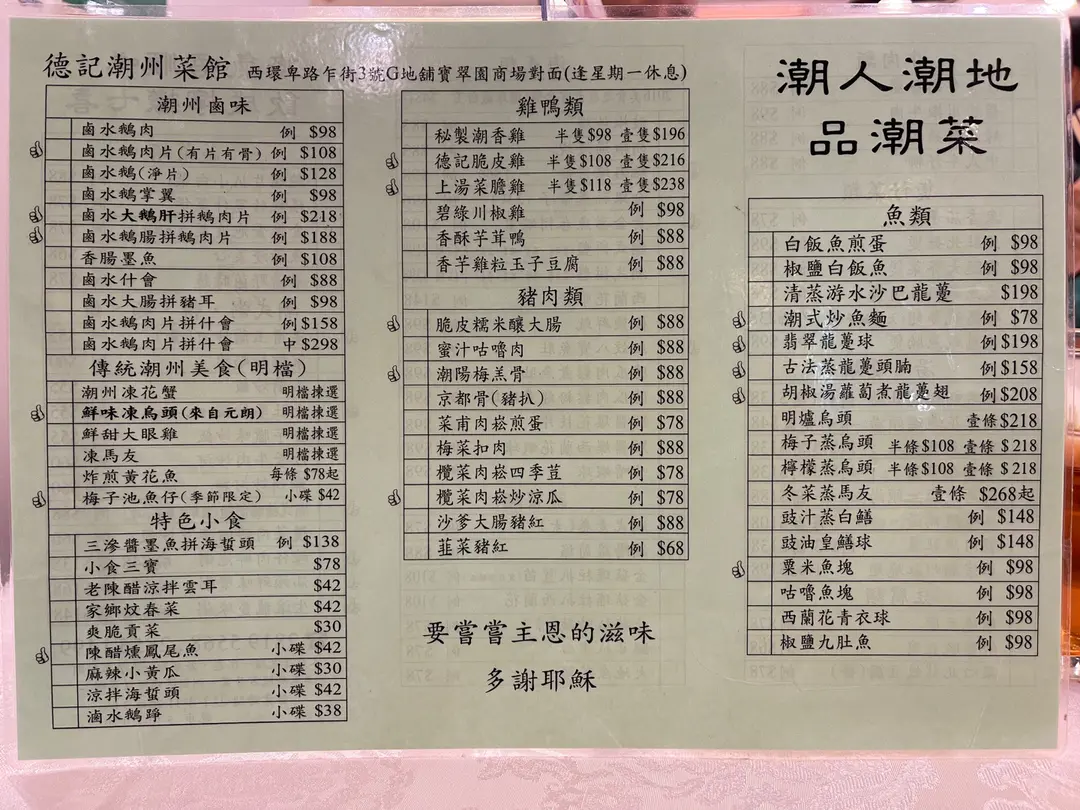 德記潮州菜館 西環卑路乍街3號G地舖寶翠園商場對面(逢星期一休息)
潮州鹵味
鹵水鵝肉 例 $98
鹵水鵝肉片(有片有骨) 例 $108
鹵水鵝(淨片) 例 $128
鹵水鵝掌翼 例 $98
鹵水大鵝肝拼鵝肉片 例 $218
鹵水鵝腸拼鵝肉片 例 $188
香腸墨魚 例 $108
鹵水什會 例 $88
鹵水大腸拼豬耳 例 $98
鹵水鵝肉片拼什會 例 $158
鹵水鵝肉片拼什會 中 $298
傳統潮州美食(明檔)
潮州凍花蟹 明檔揀選
鮮味凍烏頭(來自元朗) 明檔揀選
鮮甜大眼雞 明檔揀選
凍馬友 明檔揀選
炸煎黃花魚 每條 $78起
梅子池魚仔(季節限定) 小碟 $42
特色小食
三滲醬墨魚拼海蜇頭 例 $138
小食三寶 $78
老陳醋涼拌雲耳 $42
家鄉炆春菜 $42
爽脆貢菜 $30
陳醋燻鳳尾魚 小碟 $42
麻辣小黃瓜 小碟 $30
涼拌海蜇頭 小碟 $42
滷水鵝踭 小碟 $38
雞鴨類
秘製潮香雞 半隻$98 壹隻$196
德記脆皮雞 半隻$108 壹隻$216
上湯菜膽雞 半隻$118 壹隻$238
碧綠川椒雞 例 $98
香酥芋茸鴨 例 $88
香芋雞粒玉子豆腐 例 $88
豬肉類
脆皮糯米釀大腸 例 $88
蜜汁咕嚕肉 例 $88
潮陽梅羔骨 例 $88
京都骨(豬扒) 例 $88
菜甫肉崧煎蛋 例 $78
梅菜扣肉 例 $88
欖菜肉崧四季荳 例 $78
欖菜肉崧炒涼瓜 例 $78
沙爹大腸豬紅 例 $88
韮菜豬紅 例 $68
要嘗嘗主恩的滋味
多謝耶穌
潮人潮地
品潮菜
魚類
白飯魚煎蛋 例 $98
椒鹽白飯魚 例 $98
清蒸游水沙巴龍躉 $198
潮式炒魚麵 例 $78
翡翠龍躉球 例 $198
古法蒸龍躉頭腩 例 $158
胡椒湯蘿蔔煮龍躉翅 例 $208
明爐烏頭 壹條 $218
梅子蒸烏頭 半條 $108 壹條 $218
檸檬蒸烏頭 半條 $108 壹條 $218
冬菜蒸馬友 壹條 $268起
豉汁蒸白鱔 例 $148
豉油皇鱔球 例 $148
粟米魚塊 例 $98
咕嚕魚塊 例 $98
西蘭花青衣球 例 $98
椒鹽九肚魚 例 $98